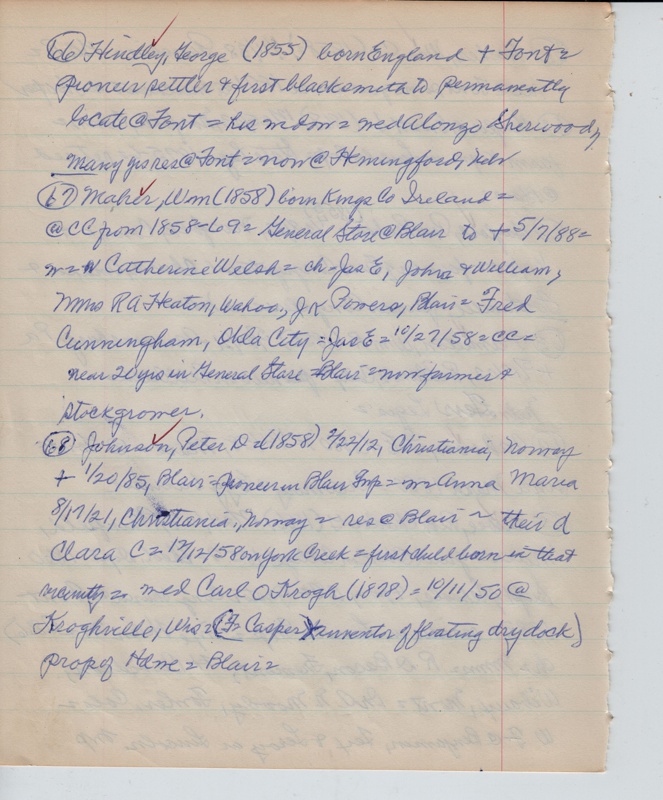 (66) Hindley, George (1855) born England + Font =
pioneer settler & first blacksmith to permanently
locate @ Font = his widow = med Alonzo Sherwood,
many yrs res @ Font = now @ Hemingford, Nebr
(67) Maher, Wm (1858) born Kings Co Ireland =
@ CC from 1858-69 = General Store @ Blair to + 5/7/88 =
w = Catherine Welsh = ch = Jas E, John & William,
Mrs R A Heaton, Wahoo, J K Powers, Blair = Fred
Cunningham, Okla City = Jas E = 10/27/58 = CC =
near 20 yrs in General Store = Blair = now farmer &
stockgrower.
(68) Johnson, Peter D = (1858) 2/22/12, Christiania, Norway
+ 1/20/85, Blair = pioneer in Blair Imp = w = Anna Maria
8/17/21, Christiania, Norway = res @ Blair ~ their d
Clara C = 12/12/58 on York Creek = first child born in that
vicinity = med Carl O Krogh (1878) = 10/11/50 @
Kroghville, Wis = (F = Casper) (inventor of floating dry dock)
prop of Hdwe = Blair =